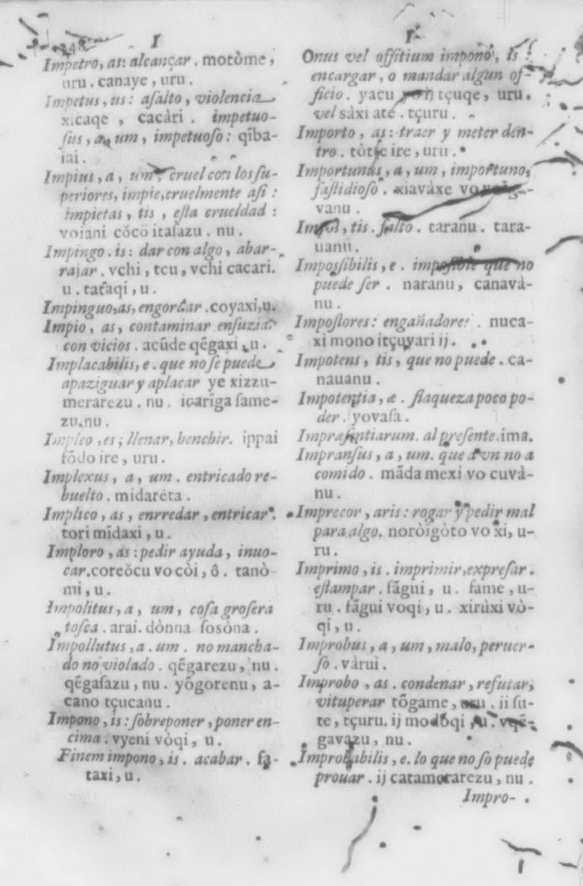 248 I
Impetro, as: alcançar. motòme,
uru. canaye, uru.
Impetus, us: asalto, violencia
xicaqe, cacàri. impetuo-
sus, a, um, impetuoso: qîba-
iai.
Impius, a, um, cruel con los su-
periores, impie, cruelmente asi:
impietas, tis, esta crueldad:
voiani cŏcŏ itasazu. nu.
Impingo. is: dar con algo, abar-
rajar. vchi, tçu, vchi cacari.
u. tataqi, u.
Impinguo, as, engordar. coyaxi, u.
Impio, as, contaminar ensuziar
con vicios. acûde qêgaxi, u.
Implacabilis, e. que no se puede
apaziguar y aplacar ye xizzu-
merarezu. nu. icariga same-
zu. nu.
Impleo, es; llenar, henchir. ippai
fŏdo ire, uru.
Implexus, a, um. entricado re-
buelto. midarèta.
Implico, as, enrredar, entricar.
tori mĩdaxi, u.
Imploro, as: pedir ayuda, inuo-
car. coreŏcu vo còi, ô. tanò-
mi, u.
Impolitus, a, um, cosa grosera
tosca. arai. dònna fosòna.
Impollutus, a. um. no mancha-
do no violado. qêgarezu, nu.
qêgasazu, nu. yŏgorenu, a-
cano tçucanu.
Impono, is: sobreponer, poner en-
cima. vyeni vòqi, u.
Finem impono, is. acabar. fa-
taxi, u.
I
Onus vel offitium impono, is:
encargar, o mandar algun of-
ficio. yacu vo i tçuqe, uru.
vel sàxi atè. tçuru.
Importo, as: traer y meter den-
tro. tòtte ire, uru.
Importunus, a, um, importuno,
fastidioso. xiavàxe vo
vanu.
Impos, tis. falto. taranu. tara-
uanu.
Impossibilis, e. imposible que no
puede ser. naranu, canavà-
nu.
Impostores: engañadores. nuca-
xi mono itçuvari ij.
Impotens, tis, que no puede. ca-
nauanu.
Impotentia, æ. flaqueza poco po-
der. yovasa.
Imprasentiarum. al presente. ima.
Impransus, a, um. que avn no a
comido. mãda mexi vo cuvà-
nu.
Imprecor, aris: rogar y pedir mal
para algo. noròigòto vo xi, u-
ru.
Imprimo, is. imprimir, expresar.
estampar. fãgui, u. fame, u-
ru. fãgui voqi, u. xirùxi vò-
qi, u.
Improbus, a, um, malo, peruer-
so. vàrui.
Improbo, as. condenar, refutar,
vituperar tõgame, uru. ii su-
te, tçuru. ij modoqi, u. vqê-
gavazu, nu.
Improbabilis, e. lo que no so puede
prouar. ij catamerarezu, nu.
Impro-